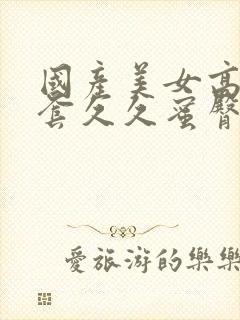 國產美女高
套久久蜜臀
愛旅游的樂樂